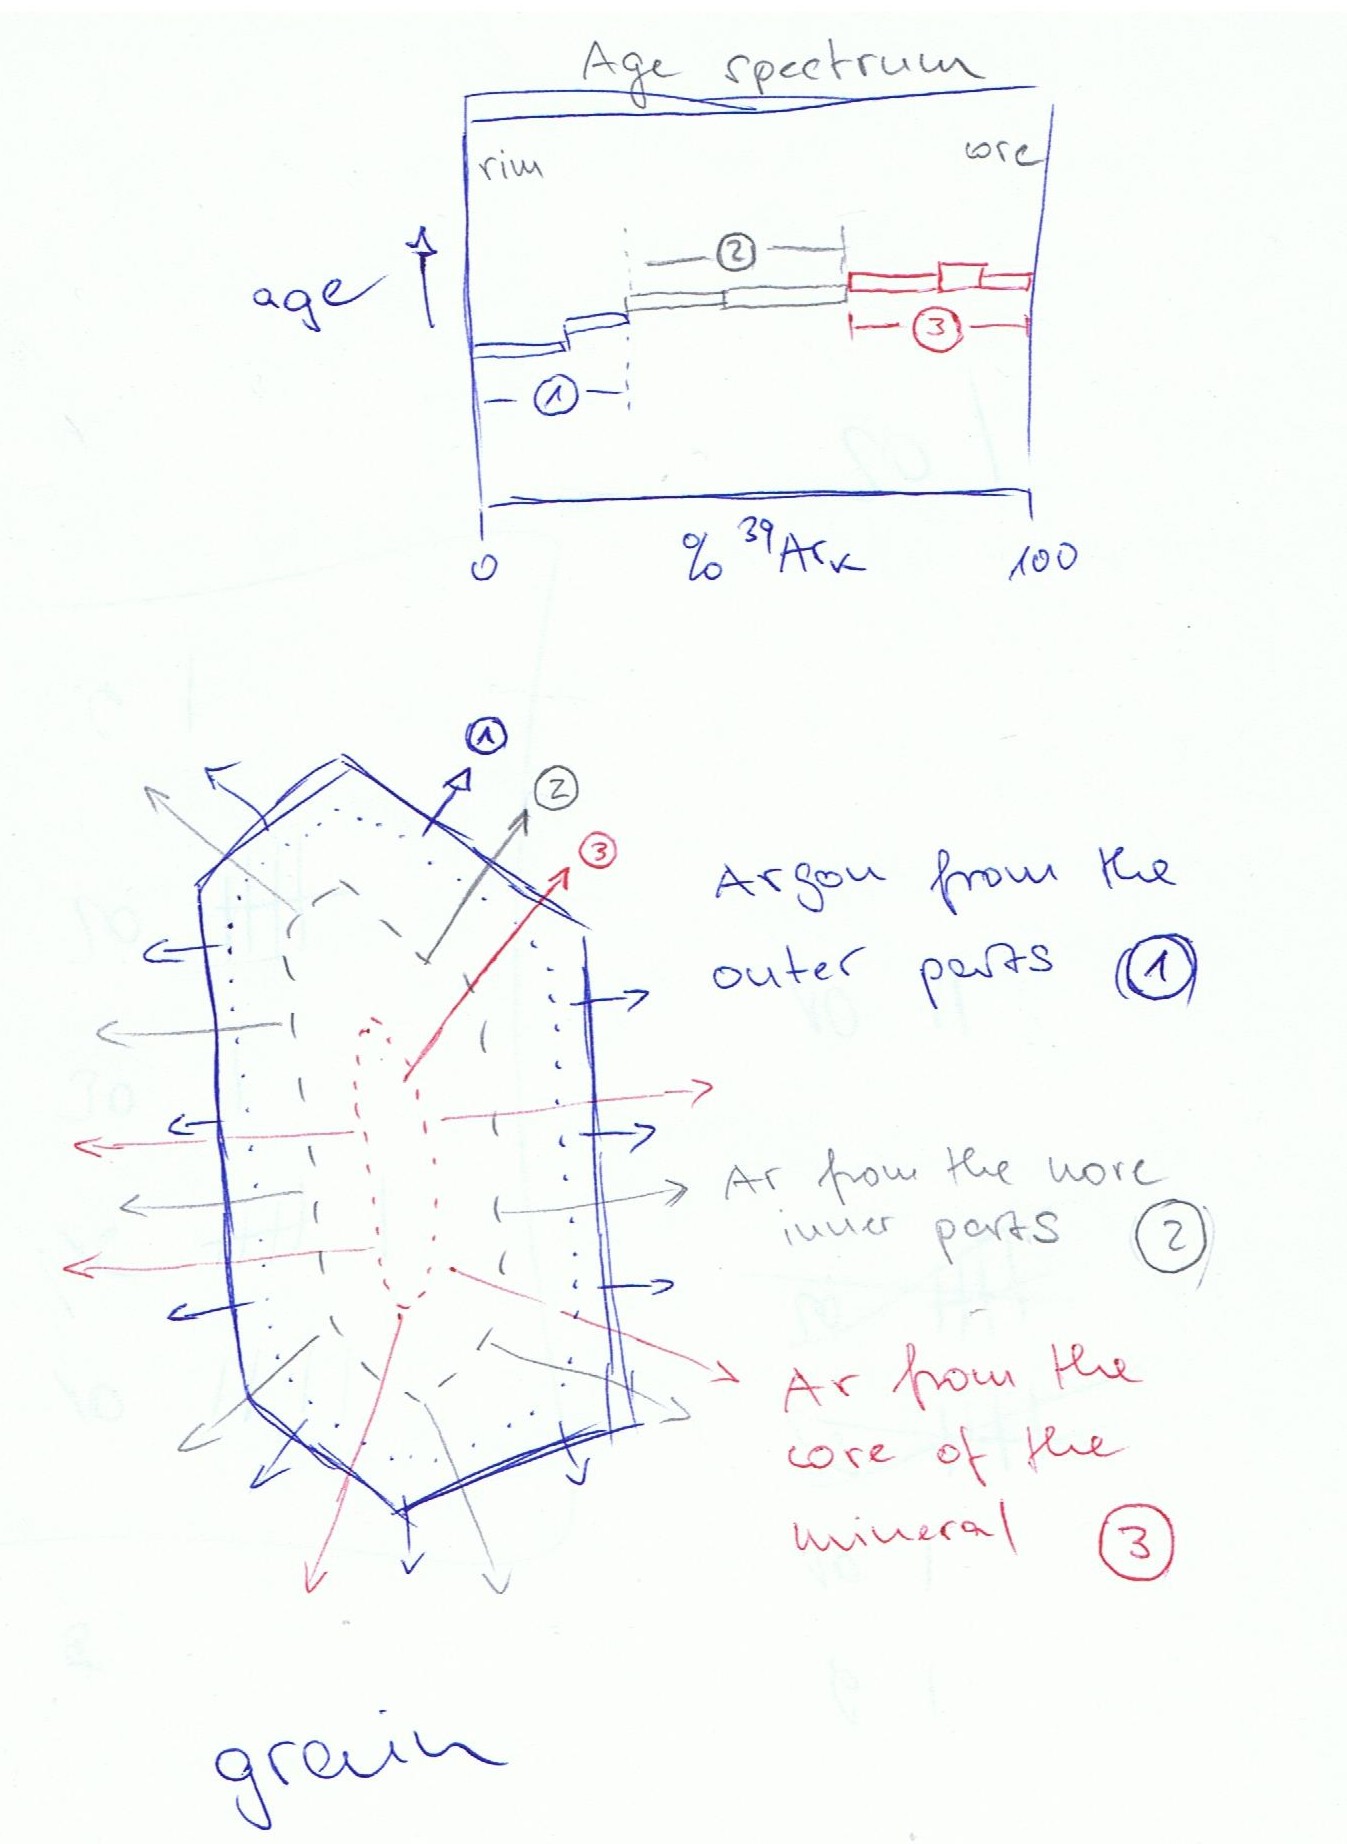 Age spectrum
rim
core
age
2
3
1
0
% ³⁹Arₖ
100
1
2
3
Argon from the
outer parts (1)
Ar from the more
inner parts 2
Ar from the
core of the
mineral 3
grain